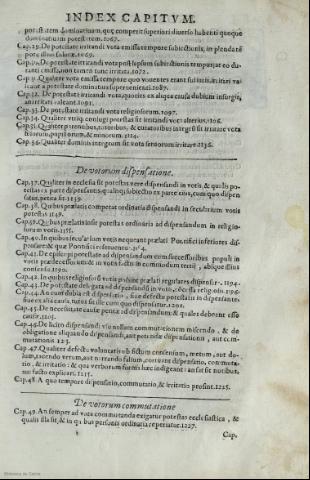 INDEX CAPITVM.
potestatem dominatiuam, quę competit superiori diuerso habenti quoque
dominatiuam potestatem. 1067.
Cap. 29. De potestate irritandi vota emissa tempore subiectionis, in
possunt 1069.
Cap. 30. De potestate irritandi vota post lapsum subiectionis tempus, at eo durante
emissa, non tamen tunc irritata. 1072.
Cap. 31. Qualiter vota emissa tempore quo vouentes erant sui iuris, irritari valeant
a potestate dominatiua superueniente 1087.
Cap. 32. De potestate irritandi vota, quoties ex aliqua causa dubium insurgit,
an irritari valeant. 1091.
Cap. 33. De potestate irritandi vota religiosorum. 1097.
Cap. 34. Qualiter vtriq; coniugi potestas sit irritandi vota alterius. 1106.
Cap. 35. Qualiter parentibus, tutoribus, & curatoribus integrum sit irritare vota
filiorum, pupillorum, & minorum. 1124.
Cap. 36. Qualiter dominis integrum sit vota seruorum irritare. 1136.
De votorum dispensatione.
Cap. 37. Qualiter in ecclesia sit potestas vere dispensandi in votis, & qualis potestas
ex parte dispensantis, qualisq; subiectio ex parte eius, cum quo dispensatur,
petita sit. 1139.
Cap. 38. Quibus prælatis competat ordinaria dispensandi in secularium votis
potestas 1149.
Cap. 39. Quibus prælatis insit potestas ordinaria ad dispensandum in religiosorum
votis. 1158.
Cap. 40. In quibus secularium votis nequeant prælati Pontifici inferiores dispensare:
& quæ Pontifici reseruentur. 1164.
Cap. 41. De episcopi potestate ad dispensandum cum successoribus populi in
votis prædecessorum & in votis factis in commodum tertij, absque illius
consensu. 1190.
Cap. 42. In quibus religiosorum votis possint prælati regulares dispensare. 1194.
Cap. 43. De potestate delegata ad dispensandum in votis, & de sua religioni. 1198.
Cap. 44. An cum dubia est dispensatio, siue defectu potestatis in dispensante,
siue ex alia causa, tutus sit ille cum quo dispensatur. 1201.
Cap. 45. De necessitate causæ petitæ ad dispensandum, & quales debeant esse
causæ. 1205.
Cap. 46. De licito dispensandi vsu nullam commutationem miscendo, & de
obligatione aliquando dispensandi, aut petendæ dispensationis, aut commutationis
1213.
Cap. 47. Qualiter defectu voluntatis ob fictum consensum, metum, aut dolum,
tacendo verum, aut narrando falsum, corruant dispensatio, commutatio,
& irritatio: & quæ verborum forma huic indigeant: an sat sit notibus,
aut facto explicari. 1215.
Cap. 48. A quo tempore dispensatio, commutatio, & irritatio prosint. 1225.
De votorum commutatione
Cap. 49. An semper ad vota commutanda exigatur potestas ecclesiastica, &
qualis illa sit, & in quibus personis ordinaria reperiatur. 1227.
Cap.